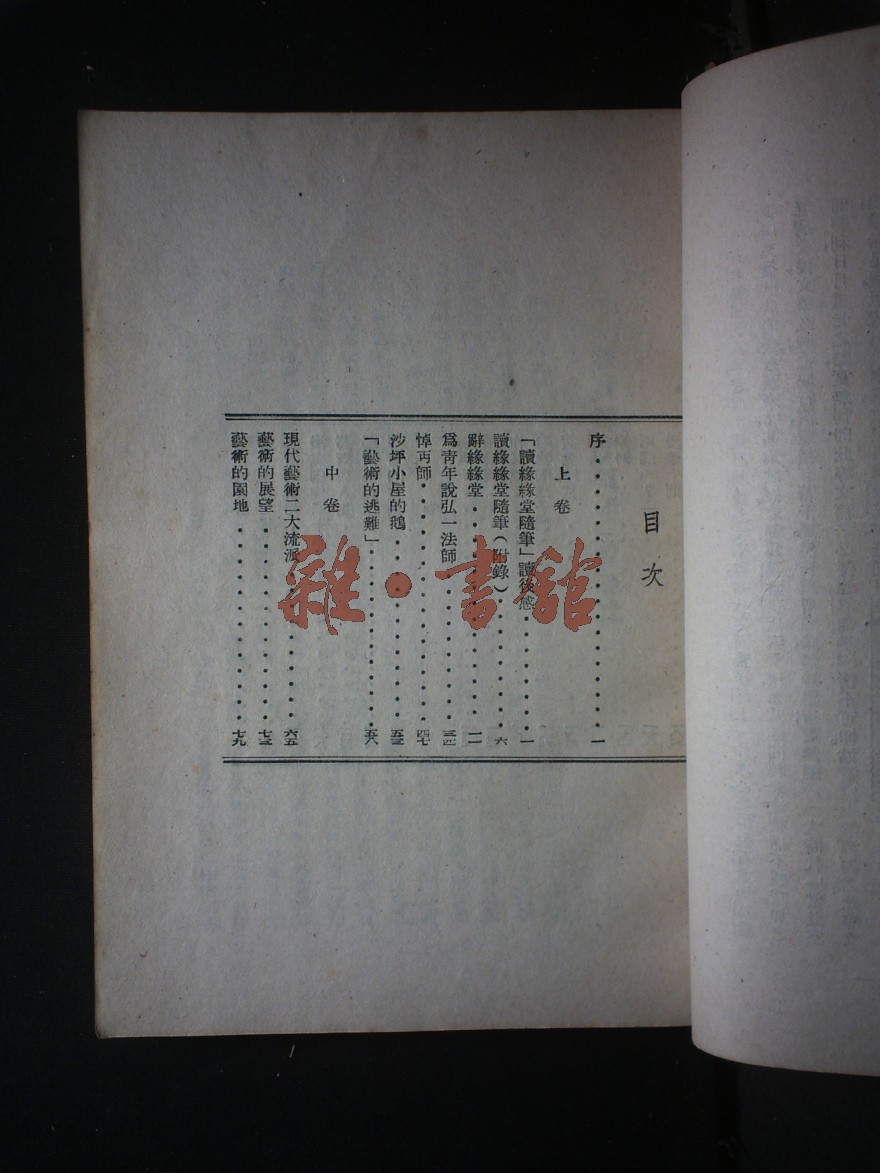 目次
序・・・・・・・・・・・・・・・・・・・・一
上卷
「讀緣緣堂隨筆」讀後感・・・・・・・一
讀緣緣堂隨筆(附錄)・・・・・・・六
辭緣緣堂・・・・・・・・・・・・・・一一
爲靑年說弘一法師・・・・・・・・三四
悼丏師・・・・・・・・・・・・・・・四七
沙坪小屋的鵝・・・・・・・・・・・五三
「藝術的逃難」・・・・・・・・・・・五八
中卷
現代藝術二大流派・・・・・・・・六五
藝術的展望・・・・・・・・・・・・七三
藝術的園地・・・・・・・・・・・・七九
雜・書舘